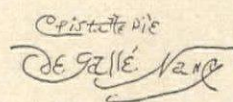 Cristallerie
de Gallé Nancy